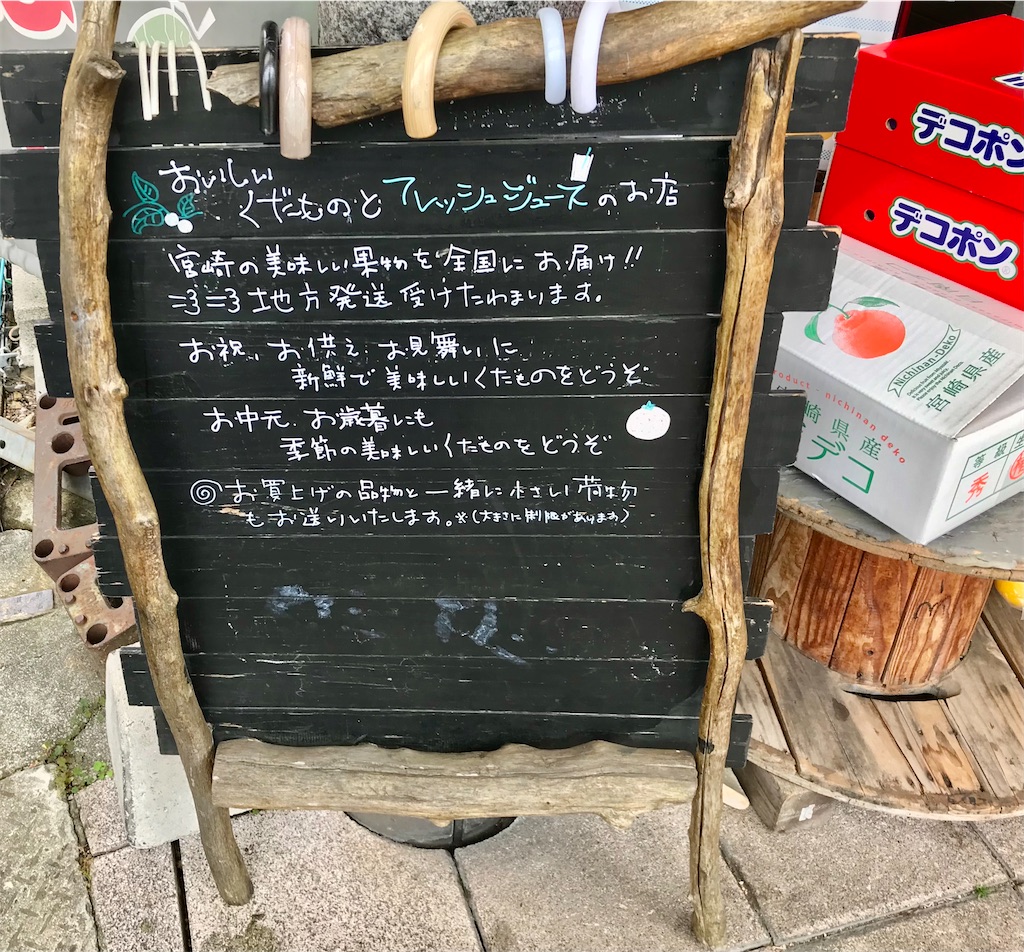 おいしい
くだものと フレッシュジュース のお店
宮崎の美味しい果物を全国にお届け!!
=3=3 地方発送受けたわまります。
お祝、お供え、お見舞いに
新鮮で美味しいくだものをどうぞ
お中元、お歳暮にも
季節の美味しいくだものをどうぞ
お買上げの品物と一緒に小さい荷物
もお送りいたします。※(大きさに制限があります)
デコポン
デコポン®
Nichinan-Deko
宮崎県産
product - nichinan deko
崎県産
デコ
等級
秀